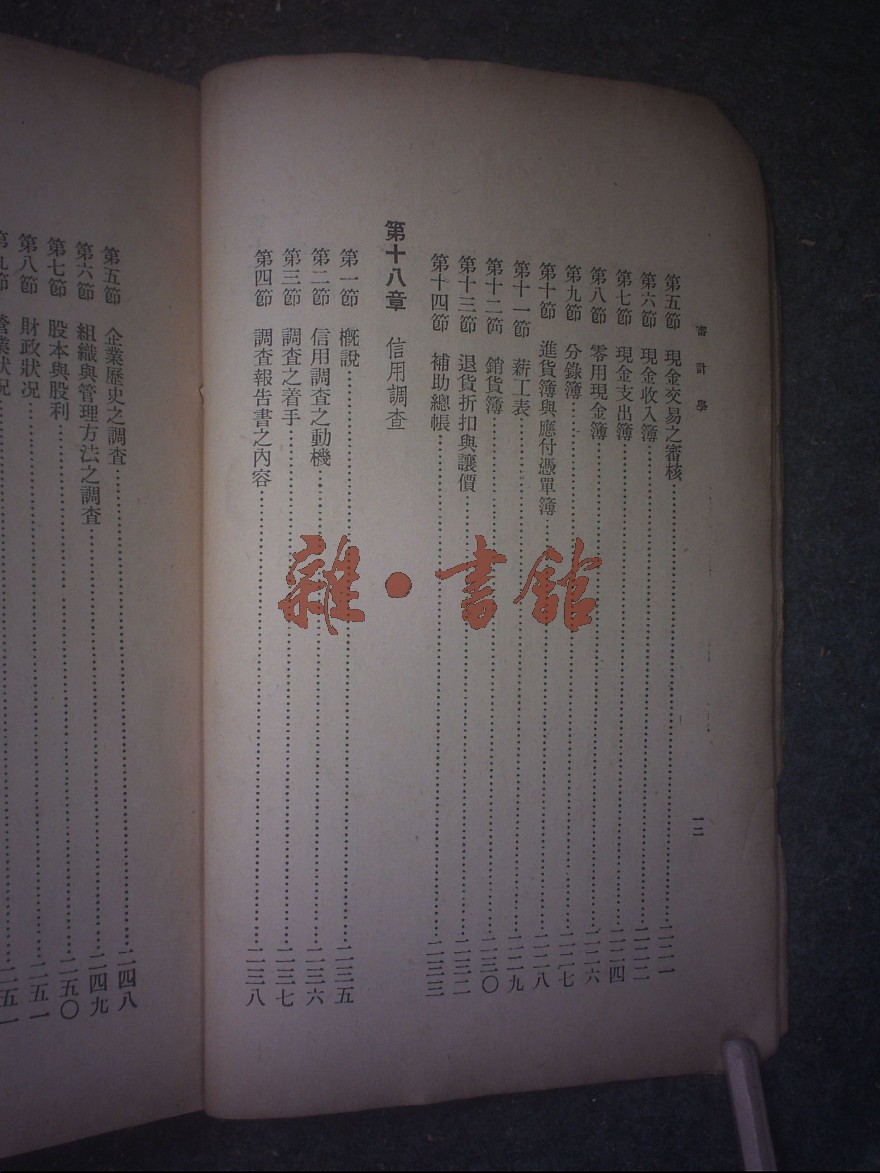 審計學
一二
第五節　現金交易之審核……二二一
第六節　現金收入簿……二二二
第七節　現金支出簿……二二四
第八節　零用現金簿……二二六
第九節　分錄簿……二二七
第十節　進貨簿與應付憑單簿……二二八
第十一節　薪工表……二二九
第十二節　銷貨簿……二三〇
第十三節　退貨折扣與讓價……二三二
第十四節　補助總帳……二三三
第十八章　信用調查
第一節　槪說……二三五
第二節　信用調查之動機……二三六
第三節　調查之着手……二三七
第四節　調查報告書之內容……二三八
第五節　企業歷史之調查……二四八
第六節　組織與管理方法之調查……二四九
第七節　股本與股利……二五〇
第八節　財政狀况……二五一
第九節　營業狀况……二五一
雜·書館